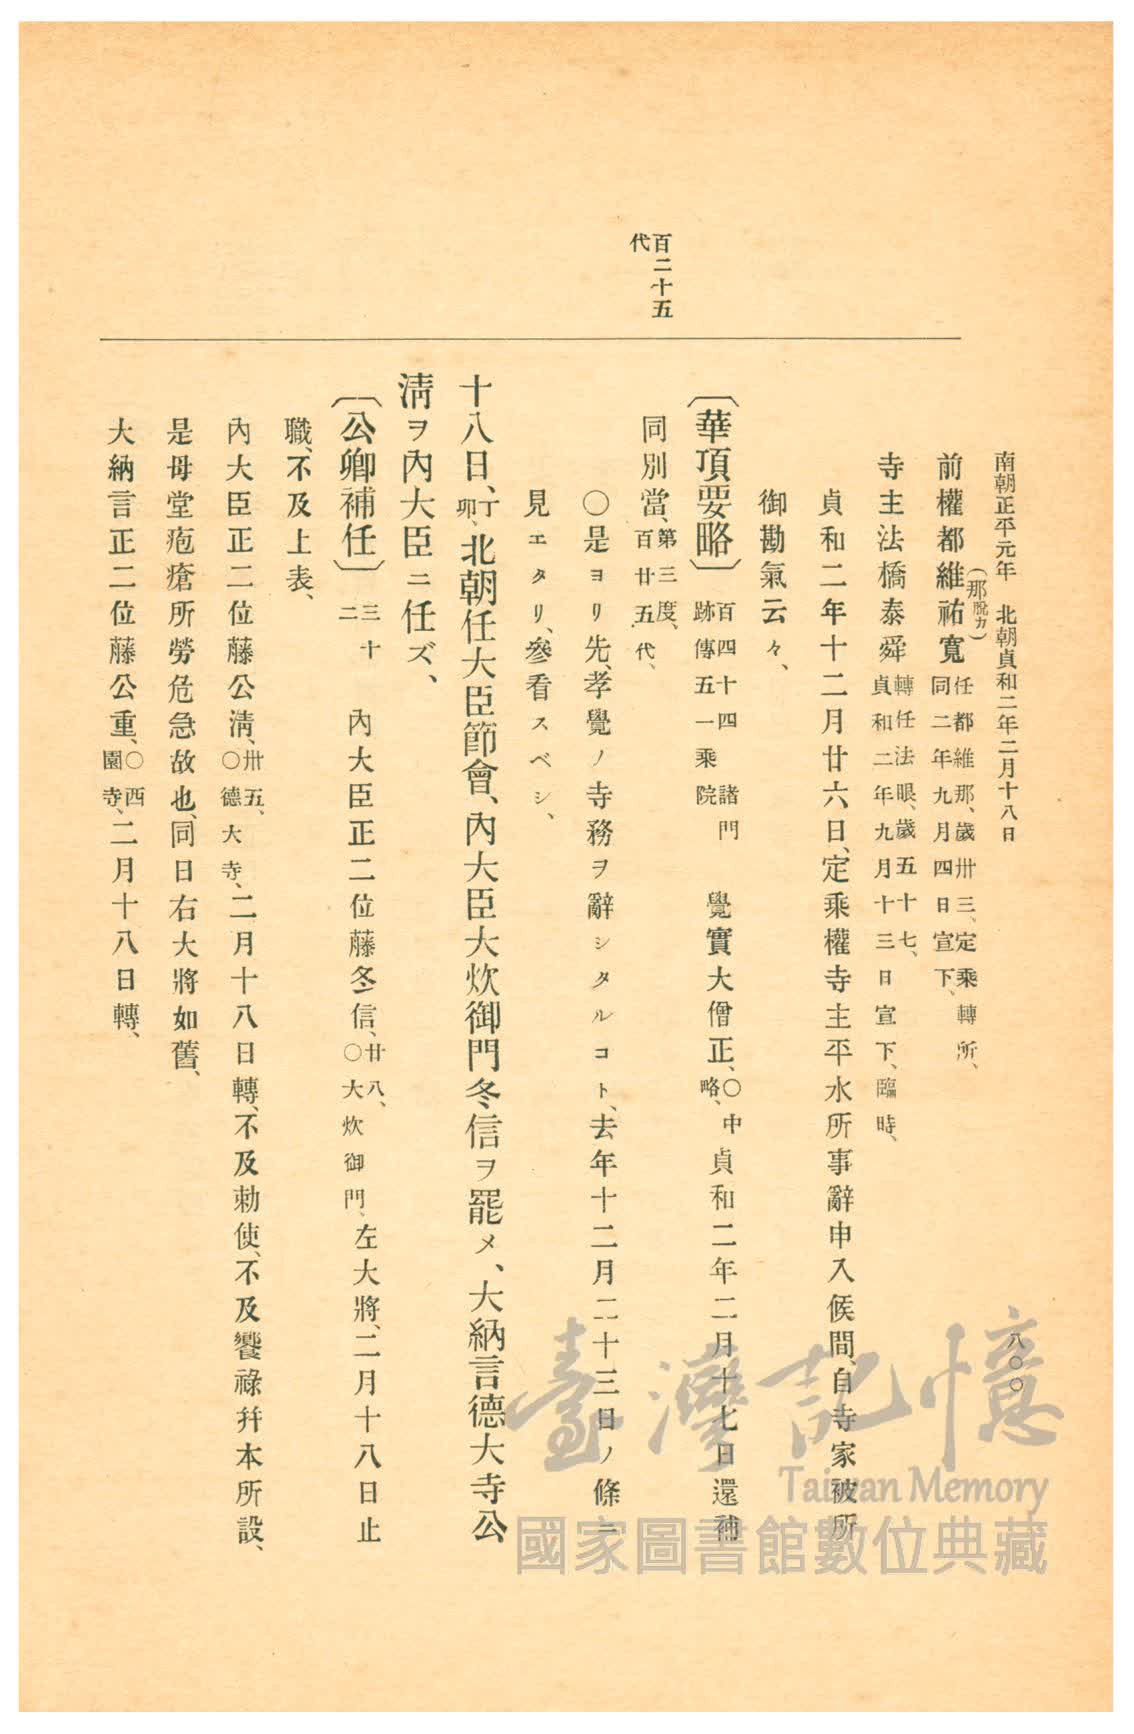 百二十五
代
南朝正平元年 北朝貞和二年二月十八日
八〇〇
前權都維祐寬任都維那、歲卅三、定乘轉所、同二年九月四日宣下、
(那脫カ)
寺主法橋泰舜轉任法眼、歲五十七、貞和二年九月十三日宣下、臨時、
貞和二年十二月廿六日、定乘權寺主平水所事辭申入候間、自寺家被所
御勘氣云々、
〔華頂要略〕百四十四 諸門跡傳五一乘院 覺實大僧正、〇中略、貞和二年二月十七日還補
同別當、第三度、百廿五代、
〇是ヨリ先、孝覺ノ寺務ヲ辭シタルコト、去年十二月二十三日ノ條ニ
見エタリ、參看スベシ、
十八日、丁卯、北朝任大臣節會、內大臣大炊御門冬信ヲ罷メ、大納言德大寺公
淸ヲ內大臣ニ任ズ、
〔公卿補任〕三十二 內大臣正二位藤冬信、廿八、〇大炊御門、左大將、二月十八日止
職、不及上表、
內大臣正二位藤公淸、卅五、〇德大寺、二月十八日轉、不及勅使、不及饗祿幷本所設、
是母堂疱瘡所勞危急故也、同日右大將如舊、
大納言正二位藤公重、〇西園寺、二月十八日轉、
臺灣記憶
Taiwan Memory
國家圖書館數位典藏